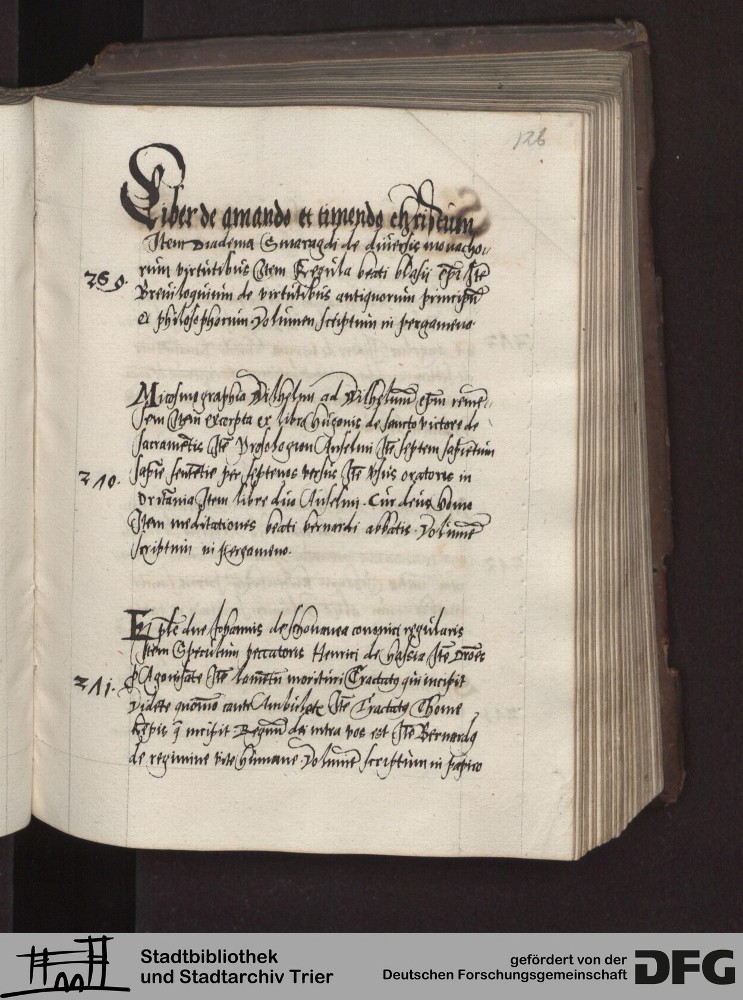 126
Liber de amando et timendo christum
Item Diadema Smaragdi de diversis monacho-
rum virtutibus Item Regula beati blasii epi Ite
209. Breviloquium de virtutibus antiquorum principu
et philosophorum Volumen scriptum in pergameno.
Micosmographia Wilhelmi ad Wilhelmu epm remen
sem Item excerpta ex libro Hugonis de sancto victore de
sacrametis Ite Prosologion Anselmi Ite septem sapietum
210. sapie sentetie per septenos versus Ite
Item libri duo Anselmi. Cur deus homo
Item meditationes beati bernardi abbatis. Volume
scriptum in pergameno.
Eple due Johannis de schonauea canonici regularis
Item Speculum peccatoris Henrici de Hassia Ite
211. p Agonisate Ite lametu morituri Tractatq qui incipit
Videte quomo caute Ambuletz Ite Tractatq Thome
kepis q incipit Regnu dei intra vos est Ite Bernardq
de regimine vite humane Volume scriptum in papiro
Stadtbibliothek
und Stadtarchiv Trier
gefördert von der
Deutschen Forschungsgemeinschaft
DFG